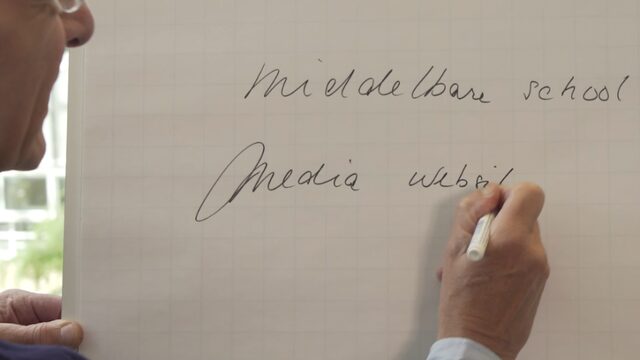 Middelbare school
Media websit